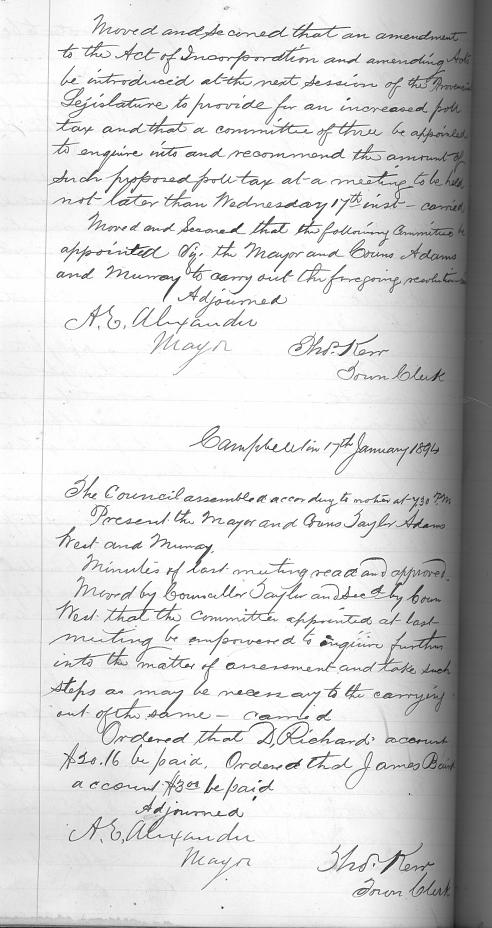 Moved and seconed that an amendment
to the Act of Incorporation and amending Acts
be introduced at the next session of the Provincial
Legislature to provide for an increased poll
tax and that a committee of three be appointed
to enquire into and recommend the amount of
such proposed poll tax at a meeting to be held
not later than Wednesday 17th inst - carried
Moved and Second that the following Committee be
appointed Viz. the Mayor and Couns Adams
and Murray to carry out the foregoing resolution
Adjourned
A. E. Alexander
Mayor
Thos. Kerr
Town Clerk
Campbellton 17th January 1894
The Council assembled according to notice at 7.30 P.M
Present the Mayor and Couns Taylor Adams
West and Murray.
Minutes of last meeting read and approved.
Moved by Councillor Taylor and Secd by Coun
West that the committee appointed at last
meeting be empowered to enquire further
into the matter of assessment and take such
steps as may be necessary to the carrying
out of the same - carried
Ordered that D. Richards account
$20.16 be paid. Ordered that James
account $3.00 be paid
Adjourned
A. E. Alexander
Mayor
Thos. Kerr
Town Clerk